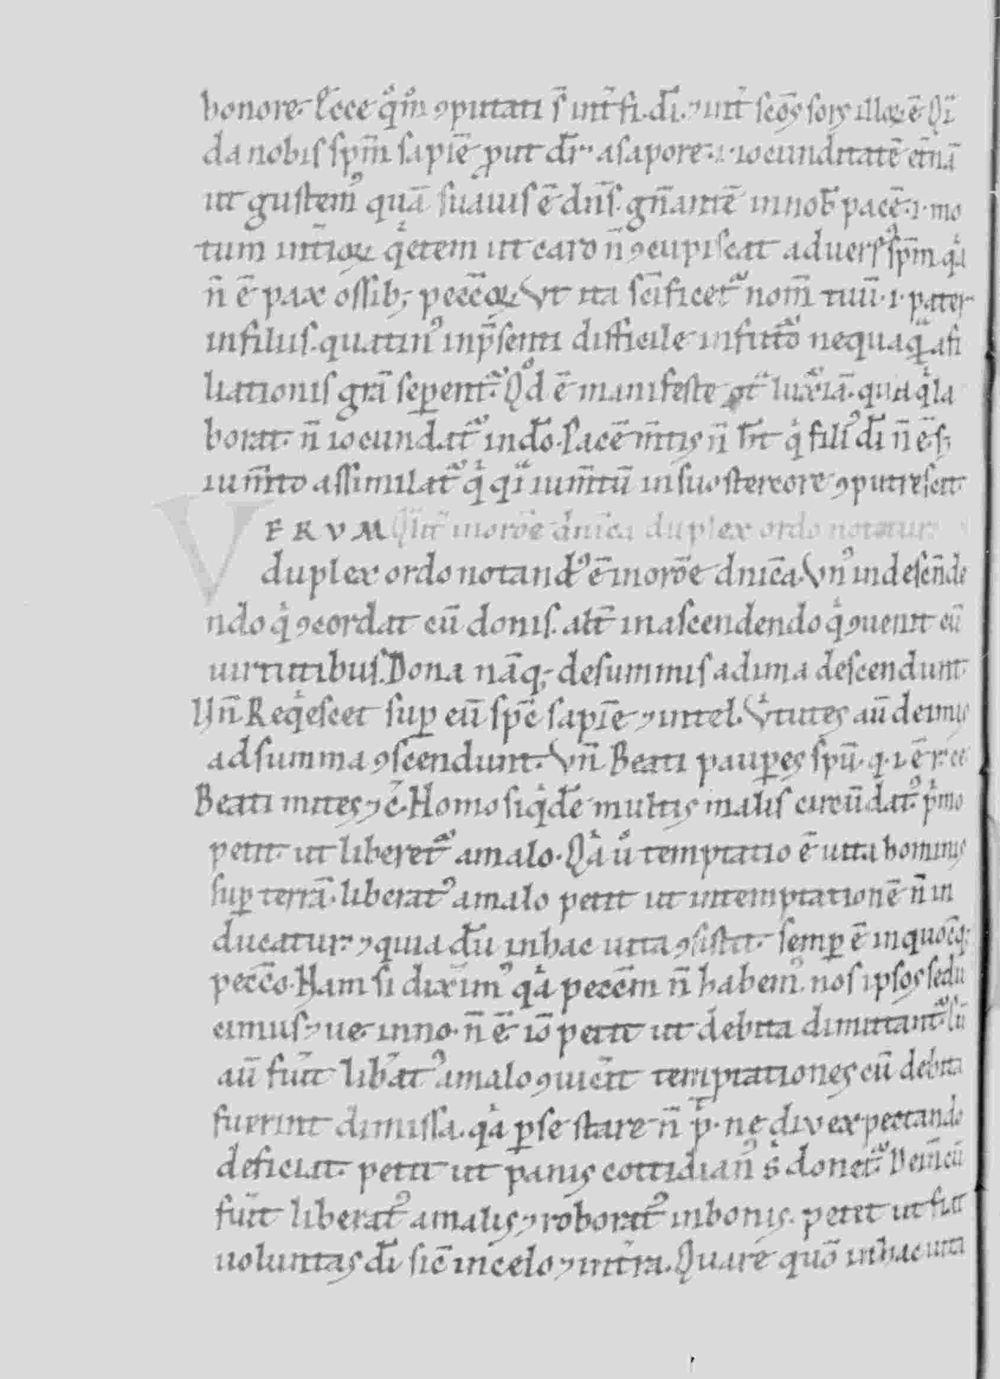 honore. Ecce q̊m̊ ꝯputati s̄ int̄ fi. dī. ⁊ int̄ sc̄os sors illoꝝ ē. Qi̅
da nobis sp̄m sapiē ꝓut dr̄. a sapore .i. iocunditatē et̄nā
ut gustem᷒ quā suauis ē dn̄s. gn̄antē in nob̄ pacē .i. mo
tum int̄ioꝝ q̇etem ut caro n̄ ꝯcupiscat aduers᷒ sp̄m qi̇
n̄ ē pax ossib; pecc̄oꝝ. Vt ita sc̄ificet᷑ nom̄ tuū .i. pater
in filiis. quatin᷒ in p̄senti difficile in futuro nequaq̄ a fi
liationis gr̄a seꝑent᷑. Qd̊ ē manifeste luxiā. quia q̇ la
borat. n̄ iocundat᷑ in dō. Pacē m̄tis n̄ ht̄ q̇ fili᷒ dī n̄ ē. s;
ium̄to assimilat᷑ q̇ qi̅ ium̄tū in suo stercore ꝯputrescit.
VERVM Qlit̄ in orōē dn̄ica duplex ordo notatur.
duplex ordo notand᷒ ē in orōē dn̄ica. Vn᷒ in desc̄nde
ndo q̇ ꝯcordat cū donis. alt̄ in ascendendo q̇ ꝯuenit cū
uirtutibus. Dona nāq; de summis ad ima descendunt.
Vn̄ Req̇escet suꝑ eū sp̄c sapiē ⁊ intel. V̇tutes aū de imis
ad summa ꝯscendunt. Vn̄ Beati pauꝑes spū. q. i. ē. r. ce
Beati mites ⁊ c̄. Homo siq̇dē multis malis circūdat᷒ ṗmo
petit ut liberet᷑ a malo. Qi̇a ů temptatio ē uita hominis
suꝑ terrā. liberat᷒ a malo petit ut in temptationē n̄ in
ducatur. ⁊ quia dū in hac uita ꝯsistit. semꝑ ē in quoc̄q;
pecc̄o. Nam si dixim᷒ qi̇a pecc̄m n̄ habem᷒. nos ipsos sedu
cimus ⁊ ue. in no. n̄ ē. iō petit ut debita dimittant᷑. Cū
aū fuit̄ lib̄at᷒ a malo ꝯuicit̄ temptationes cū debita
fuerint dimissa. qi̇a ꝑ se stare n̄ p̄. ne diu expectando
deficiat. petit ut panis cottidian᷒ s̊ donet᷑. Dein̄ cū
fuit̄ liberat᷒ a malis ⁊ roborat᷒ in bonis. petit ut fiat
uoluntas dī sic̄ in celo ⁊ in t̄ra. Quare quō in hac uita